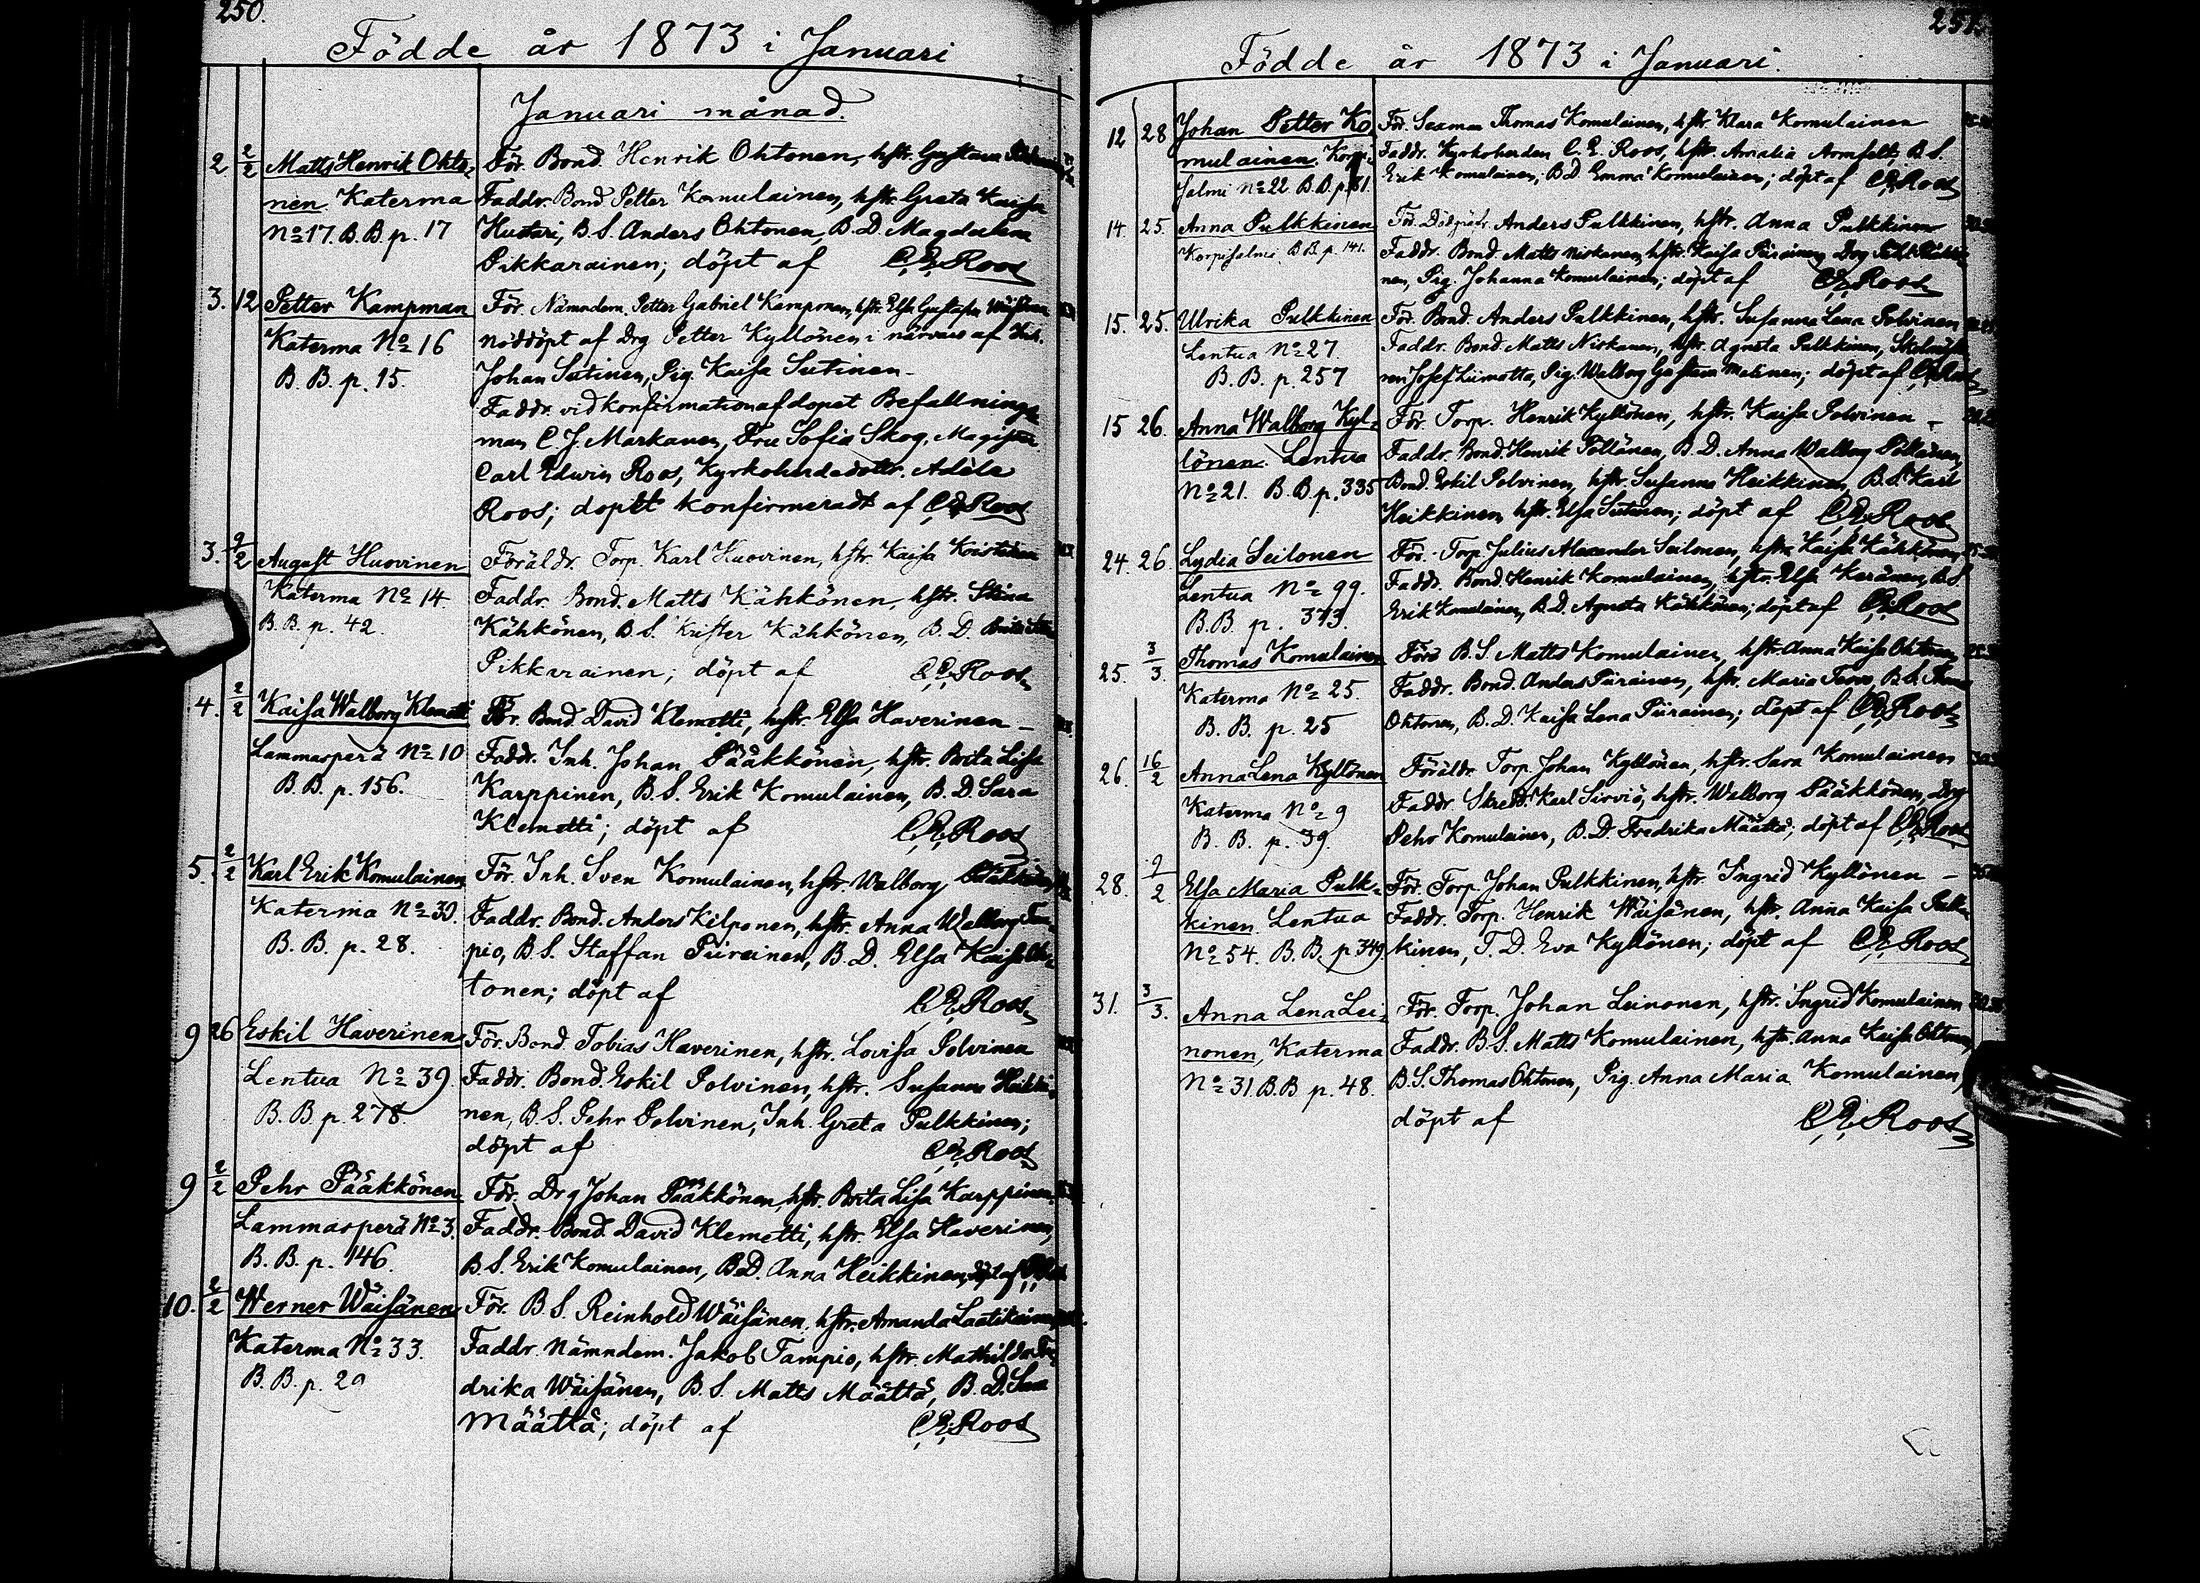 250.
Födde år 1873 i Januari
Januari månad.
2 2/2 Matts Henrik Ohto- För. Bond. Henrik Ohtonen, hstr. Gustava
nen. Katerma Faddr. Bond Petter Komulainen, hstr. Greta Kaisa
No 17. B.B. p. 17 Huotari, B.S. Anders Ohtonen, B.D. Magdalena
Pikkarainen; döpt af C.E. Roos
3. 12 Petter Kampman För. Nämndem. Petter Gabriel Kamponen, hstr. Elsa Gustafva Wäisänen
Katerma No 16 nöddöpt af Drg Petter Kyllönen i närvaro af Inh.
B.B. p. 15. Johan Sutinen, Pig. Kaisa Sutinen.
Faddr. vid konfirmation af dopet Befallnings-
man C.J. Markanen, Fru Sofia Skog, Magister
Carl Edwin Roos, Kyrkoherdedottr. Adèle
Roos; dopet konfirmeradt af C.E. Roos
3. 9/2 August Huovinen Föräldr. Torp. Karl Huovinen, hstr. Kaisa
Katerma No 14. Faddr. Bond. Matts Kähkönen, hstr. Stina
B.B. p. 42. Kähkönen, B.S. Krister Kähkönen, B.D. Brita
Pikkarainen; döpt af C.E. Roos
4. 2/2 Kaisa Walborg Klemetti För. Bond. David Klemetti, hstr. Elsa Haverinen –
Lammasperä No 10 Faddr. Inh. Johan Pääkkönen, hstr. Brita Lisa
B.B. p. 156. Karppinen, B.S. Erik Komulainen, B.D. Sara
Klemetti; döpt af C.E. Roos
5. 2/2 Karl Erik Komulainen För. Inh. Sven Komulainen, hstr. Walborg
Katerma No 30. Faddr. Bond. Anders Kilponen, hstr. Anna Walborg Tam-
B.B. p. 28. pio, B.S. Staffan Piirainen, B.D. Elsa Kaisa Oh-
tonen; döpt af C.E. Roos
9 26 Eskil Haverinen För. Bond. Tobias Haverinen, hstr. Lovisa Polvinen
Lentua No 39 Faddr. Bond. Eskil Polvinen, hstr. Susanna Heikki-
B.B. p. 278. nen, B.S. Pehr Polvinen, Inh. Greta Pulkkinen;
döpt af C.E. Roos
9 2/2 Pehr Pääkkönen För. Drg Johan Pääkkönen, hstr. Brita Lisa Karppinen.
Lammasperä No 3. Faddr. Bond. David Klemetti, hstr. Elsa Haverinen,
B.B. p. 146. B.S. Erik Komulainen, B.D. Anna Heikkinen, döpt af
10. 2/2 Werner Wäisänen För. B.S. Reinhold Wäisänen, hstr. Amanda Laatikainen
Katerma No 33. Faddr. Nämndem. Jakob Tampio, hstr. Mathilda Fre-
B.B. p. 29 drika Wäisänen, B.S. Matts Määttä, B.D. Sara
Määttä; döpt af C.E. Roos
251.
Födde år 1873 i Januari.
12 28 Johan Petter Ko- För. Seaman Thomas Komulainen, hstr. Klara Komulainen
mulainen. Korpi- Faddr. Kyrkoherden C.E. Roos, hstr. Amalia Armfelt, B.S.
salmi No 22 B.B. p. 151. Erik Komulainen, B.D. Emma Komulainen; döpt af C.E. Roos
14. 25. Anna Pulkkinen För. Anders Pulkkinen, hstr. Anna Pulkkinen
Korpisalmi B.B. p. 141. Faddr. Bond. Matts Niskanen, hstr. Kaisa Piirainen, Drg
nen, Pig. Johanna Komulainen; döpt af C.E. Roos
15. 25. Ulrika Pulkkinen För. Bond. Anders Pulkkinen, hstr. Susanna Lena Polvinen
Lentua No 27. Faddr. Bond. Matts Niskanen, hstr. Agneta Pulkkinen,
B.B. p. 257 ren Josef Liimatta, Pig. Walborg Gustava Malinen; döpt af C.E. Roos
15 26. Anna Walborg Kyl- För. Torp. Henrik Kyllönen, hstr. Kaisa Polvinen –
lönen. Lentua Faddr. Bond. Henrik Pöllänen, B.D. Anna Walborg Pöllänen,
No 21. B.B. p. 335 Bond. Eskil Polvinen, hstr. Susanna Heikkinen, B.S. Karl
Heikkinen, hstr. Elsa Sutinen; döpt af C.E. Roos
24. 26 Lydia Seilonen För. Torp. Julius Alexander Seilonen, hstr. Kaisa Kähkönen
Lentua No 99. Faddr. Bond. Henrik Komulainen, hstr. Elsa Keränen, B.S.
B.B. p. 373. Erik Komulainen, B.D. Agneta Kähkönen; döpt af C.E. Roos
25. 3/3. Thomas Komulainen Förs B.S. Matts Komulainen, hstr. Anna Kaisa Ohtonen
Katerma No 25. Faddr. Bond. Anders Piirainen, hstr. Maria Tervo, B.S. Thomas
B.B. p. 25 Ohtonen, B.D. Kaisa Lena Piirainen; döpt af C.E. Roos
26. 16/2 Anna Lena Kyllönen Föräldr. Torp. Johan Kyllönen, hstr. Sara Komulainen
Katerma No 9 Faddr. Skredd. Karl Sirviö, hstr. Walborg Pääkkönen, Drg
B.B. p. 39. Pehr Komulainen, B.D. Fredrika Määttä; döpt af C.E. Roos
28. 9/2 Elsa Maria Pulk- För. Torp. Johan Pulkkinen, hstr. Ingrid Kyllönen –
kinen. Lentua Faddr. Torp. Henrik Wäisänen, hstr. Anna Kaisa Pulk-
No 54. B.B. p 349 kinen, T.D. Eva Kyllönen; döpt af C.E. Roos
31. 3/3. Anna Lena Lei- För. Torp. Johan Leinonen, hstr. Ingrid Komulainen
nonen, Katerma Faddr. B.S. Matts Komulainen, hstr. Anna Kaisa Ohtonen,
No 31 B.B p. 48. B.S. Thomas Ohtonen, Pig. Anna Maria Komulainen;
döpt af C.E. Roos